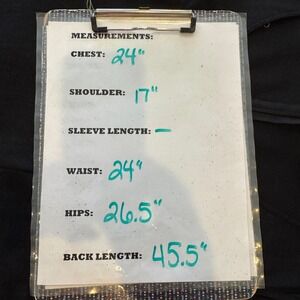 MEASUREMENTS:
CHEST: 24"
SHOULDER: 17"
SLEEVE LENGTH: —
WAIST: 24"
HIPS: 26.5"
BACK LENGTH: 45.5"